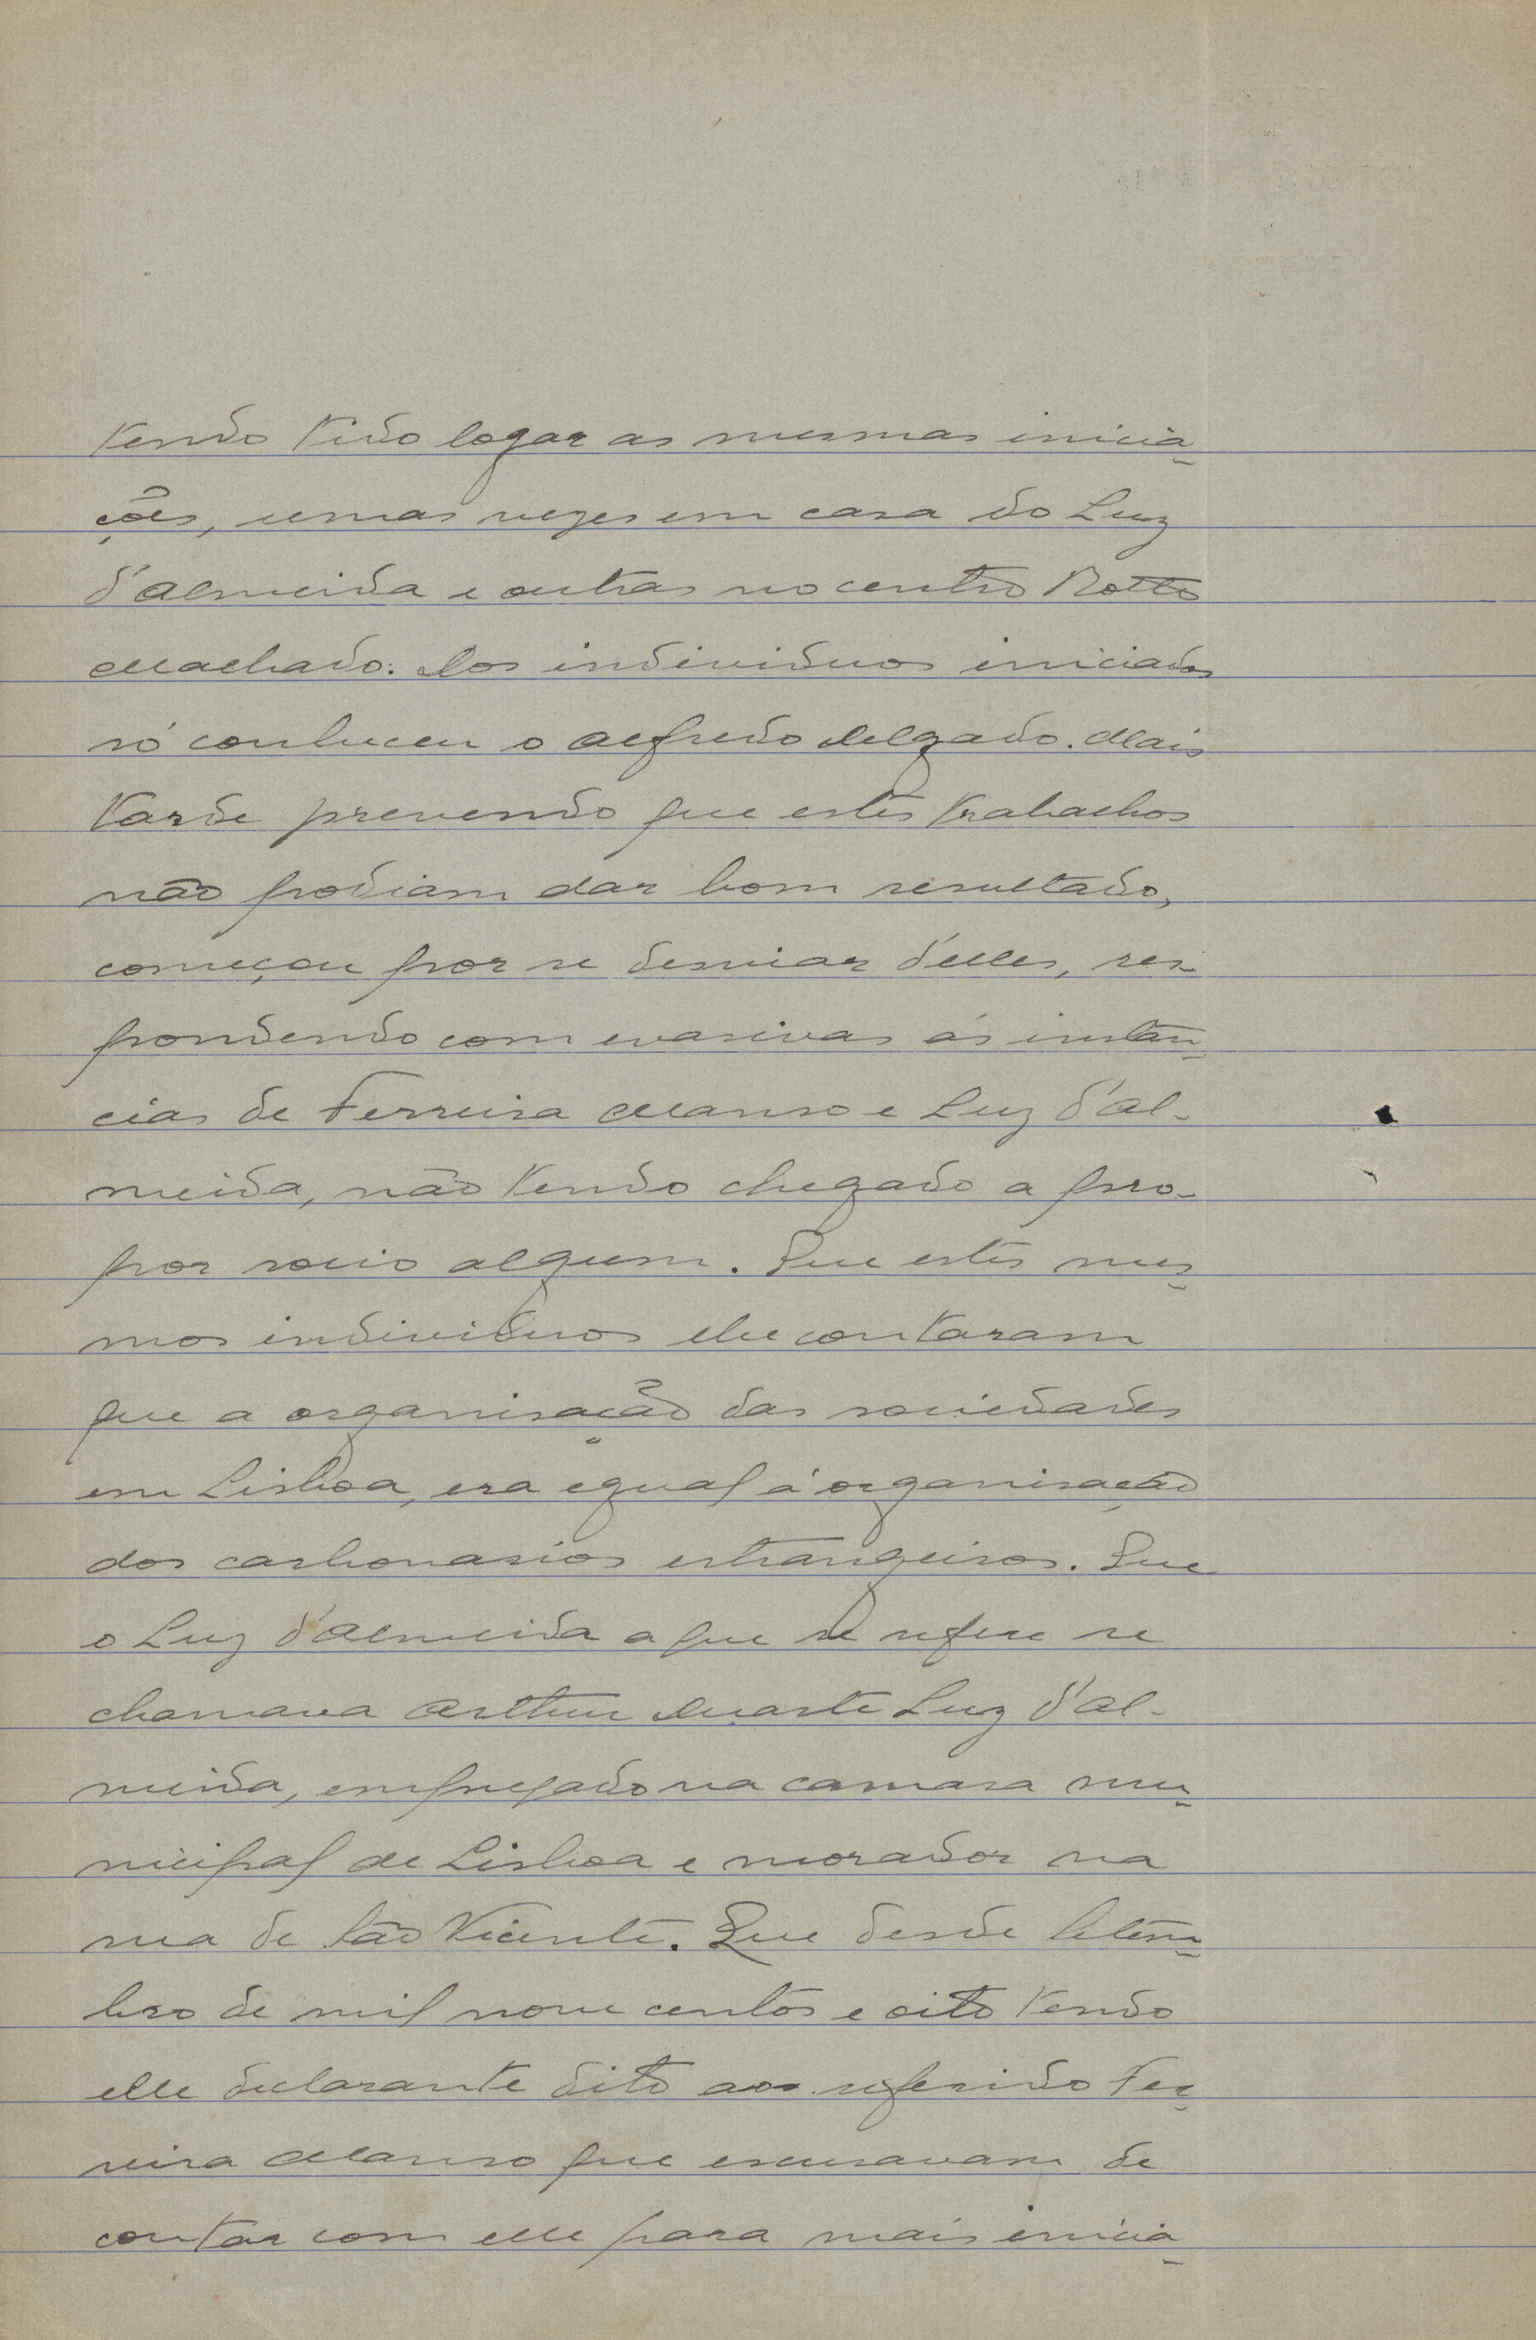 tendo tido logar as mesmas inicia-
ções, umas vezes em casa do Luz
d'Almeida e outras no centro Botto
Machado. Dos individuos iniciados
só conheceu o Alfredo Delgado. Mais
tarde prevendo que estes trabalhos
não podiam dar bom resultado,
começou por se desviar d'elles, res-
pondendo com evasivas ás instan-
cias de Ferreira Manso e Luz d'Al-
meida, não tendo chegado a pro-
por socio algum. Que estes mes-
mos individuos lhe contaram
que a organisação das sociedades
em Lisboa, era egual á organisação
dos carbonarios estrangeiros. Que
o Luz d'Almeida a que se refere se
chamava Arthur Duarte Luz d'Al-
meida, empregado na camara mu-
nicipal de Lisboa e morador na
rua de São Vicente. Que desde Setem-
bro de mil nove centos e oito tendo
elle declarante dito ao referido Fer-
reira Manso que escusavam de
contar com elle para mais inicia-